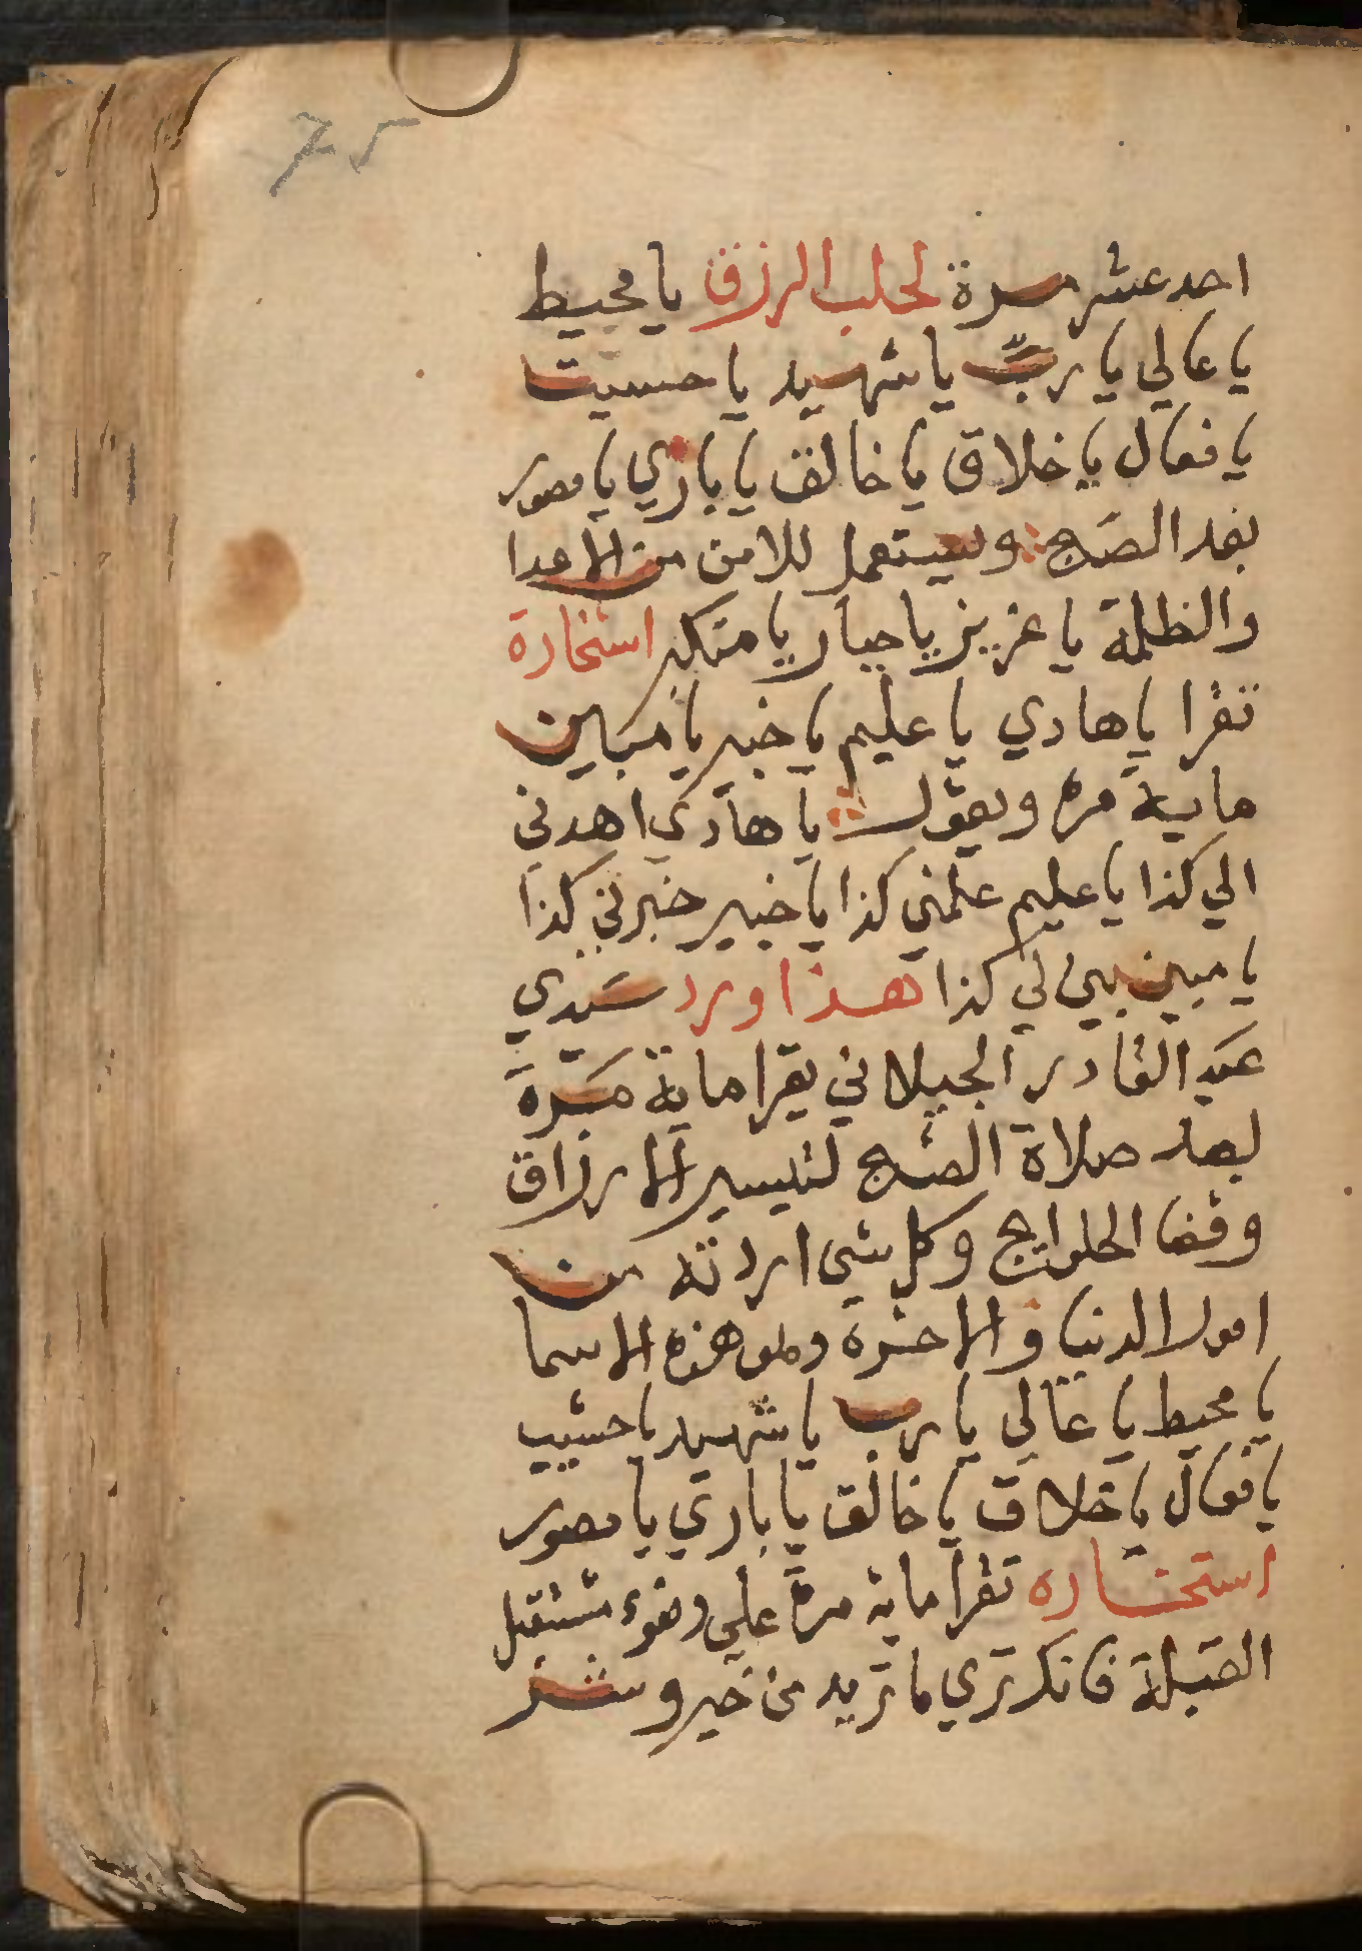 75
احد عشر مرة لجلب الرزق يا محيط
يا عالي يا ربّ يا شهيد يا حسيب
يا فعال يا خلاق يا خالق يا باري يا مصور
بعد الصبح ويستعمل للامن من الاعدا
والظلمة يا عزيز يا جبار يا متكبر استخارة
تقرا يا هادي يا عليم يا خبير يا مبين
ماية مرة ويقول يا هادي اهدني
الي كذا يا عليم علمني كذا يا خبير خبرني كذا
يا مبين بين لي كذا هذا ورد سيدي
عبد القادر الجيلاني يقرا ماية مرة
بعد صلاة الصبح لتيسير الارزاق
وقضا الحوايج وكل شي اردته من
امور الدنيا والاخرة وهو هذه الاسما
يا محيط يا عالي يا رب يا شهيد يا حسيب
يا فعال يا خلاق يا خالق يا باري يا مصور
استخاره تقرا ماية مرة علي وضوء مستقبل
القبلة فانك تري ما تريد من خير وشر